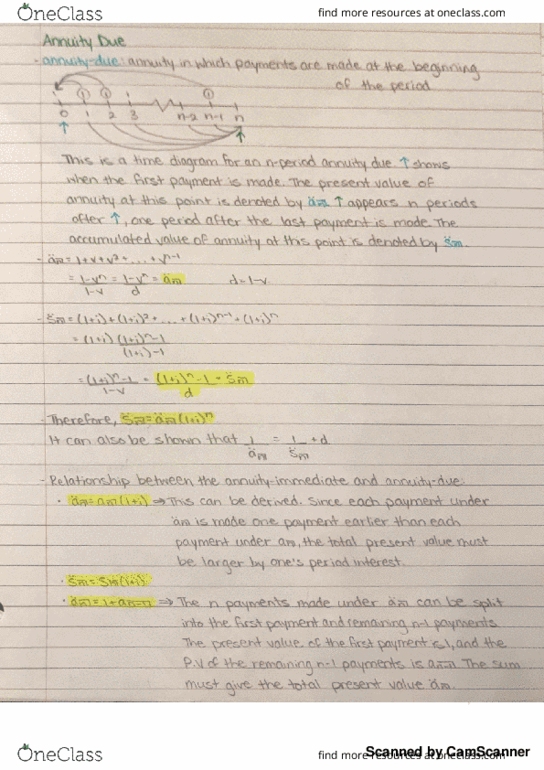 OneClass
find more resources at oneclass.com
Annuity Due
- annuity-due: annuity in which payments are made at the beginning
of the period
① ① ①
0 1 2 3 n-2 n-1 n
↑ ↑
This is a time diagram for an n-period annuity due. ↑ shows
when the first payment is made. The present value of
annuity at this point is denoted by än. ↑ appears n periods
after ↑, one period after the last payment is made. The
accumulated value of annuity at this point is denoted by s̈n.
- än = 1+v+v²+...+vⁿ⁻¹
= 1-vⁿ/1-v = 1-vⁿ/d = än d=1-v
- s̈n = (1+i)+(1+i)²+...+(1+i)ⁿ⁻¹+(1+i)ⁿ
= (1+i) (1+i)ⁿ-1/(1+i)-1
= (1+i)ⁿ-1/1-v = (1+i)ⁿ-1/d = s̈n
- Therefore, s̈n = än(1+i)ⁿ
It can also be shown that 1/än = 1/s̈n + d
- Relationship between the annuity-immediate and annuity-due:
• än = an(1+i) ⇒ This can be derived. Since each payment under
än is made one payment earlier than each
payment under an, the total present value must
be larger by one's period interest.
• s̈n = sn(1+i)
• än = 1+an-1 ⇒ The n payments made under än can be split
into the first payment and remaining n-1 payments.
The present value of the first payment is 1, and the
P.V of the remaining n-1 payments is an-1. The sum
must give the total present value än.
OneClass
find more resources at oneclass.com
Scanned by CamScanner